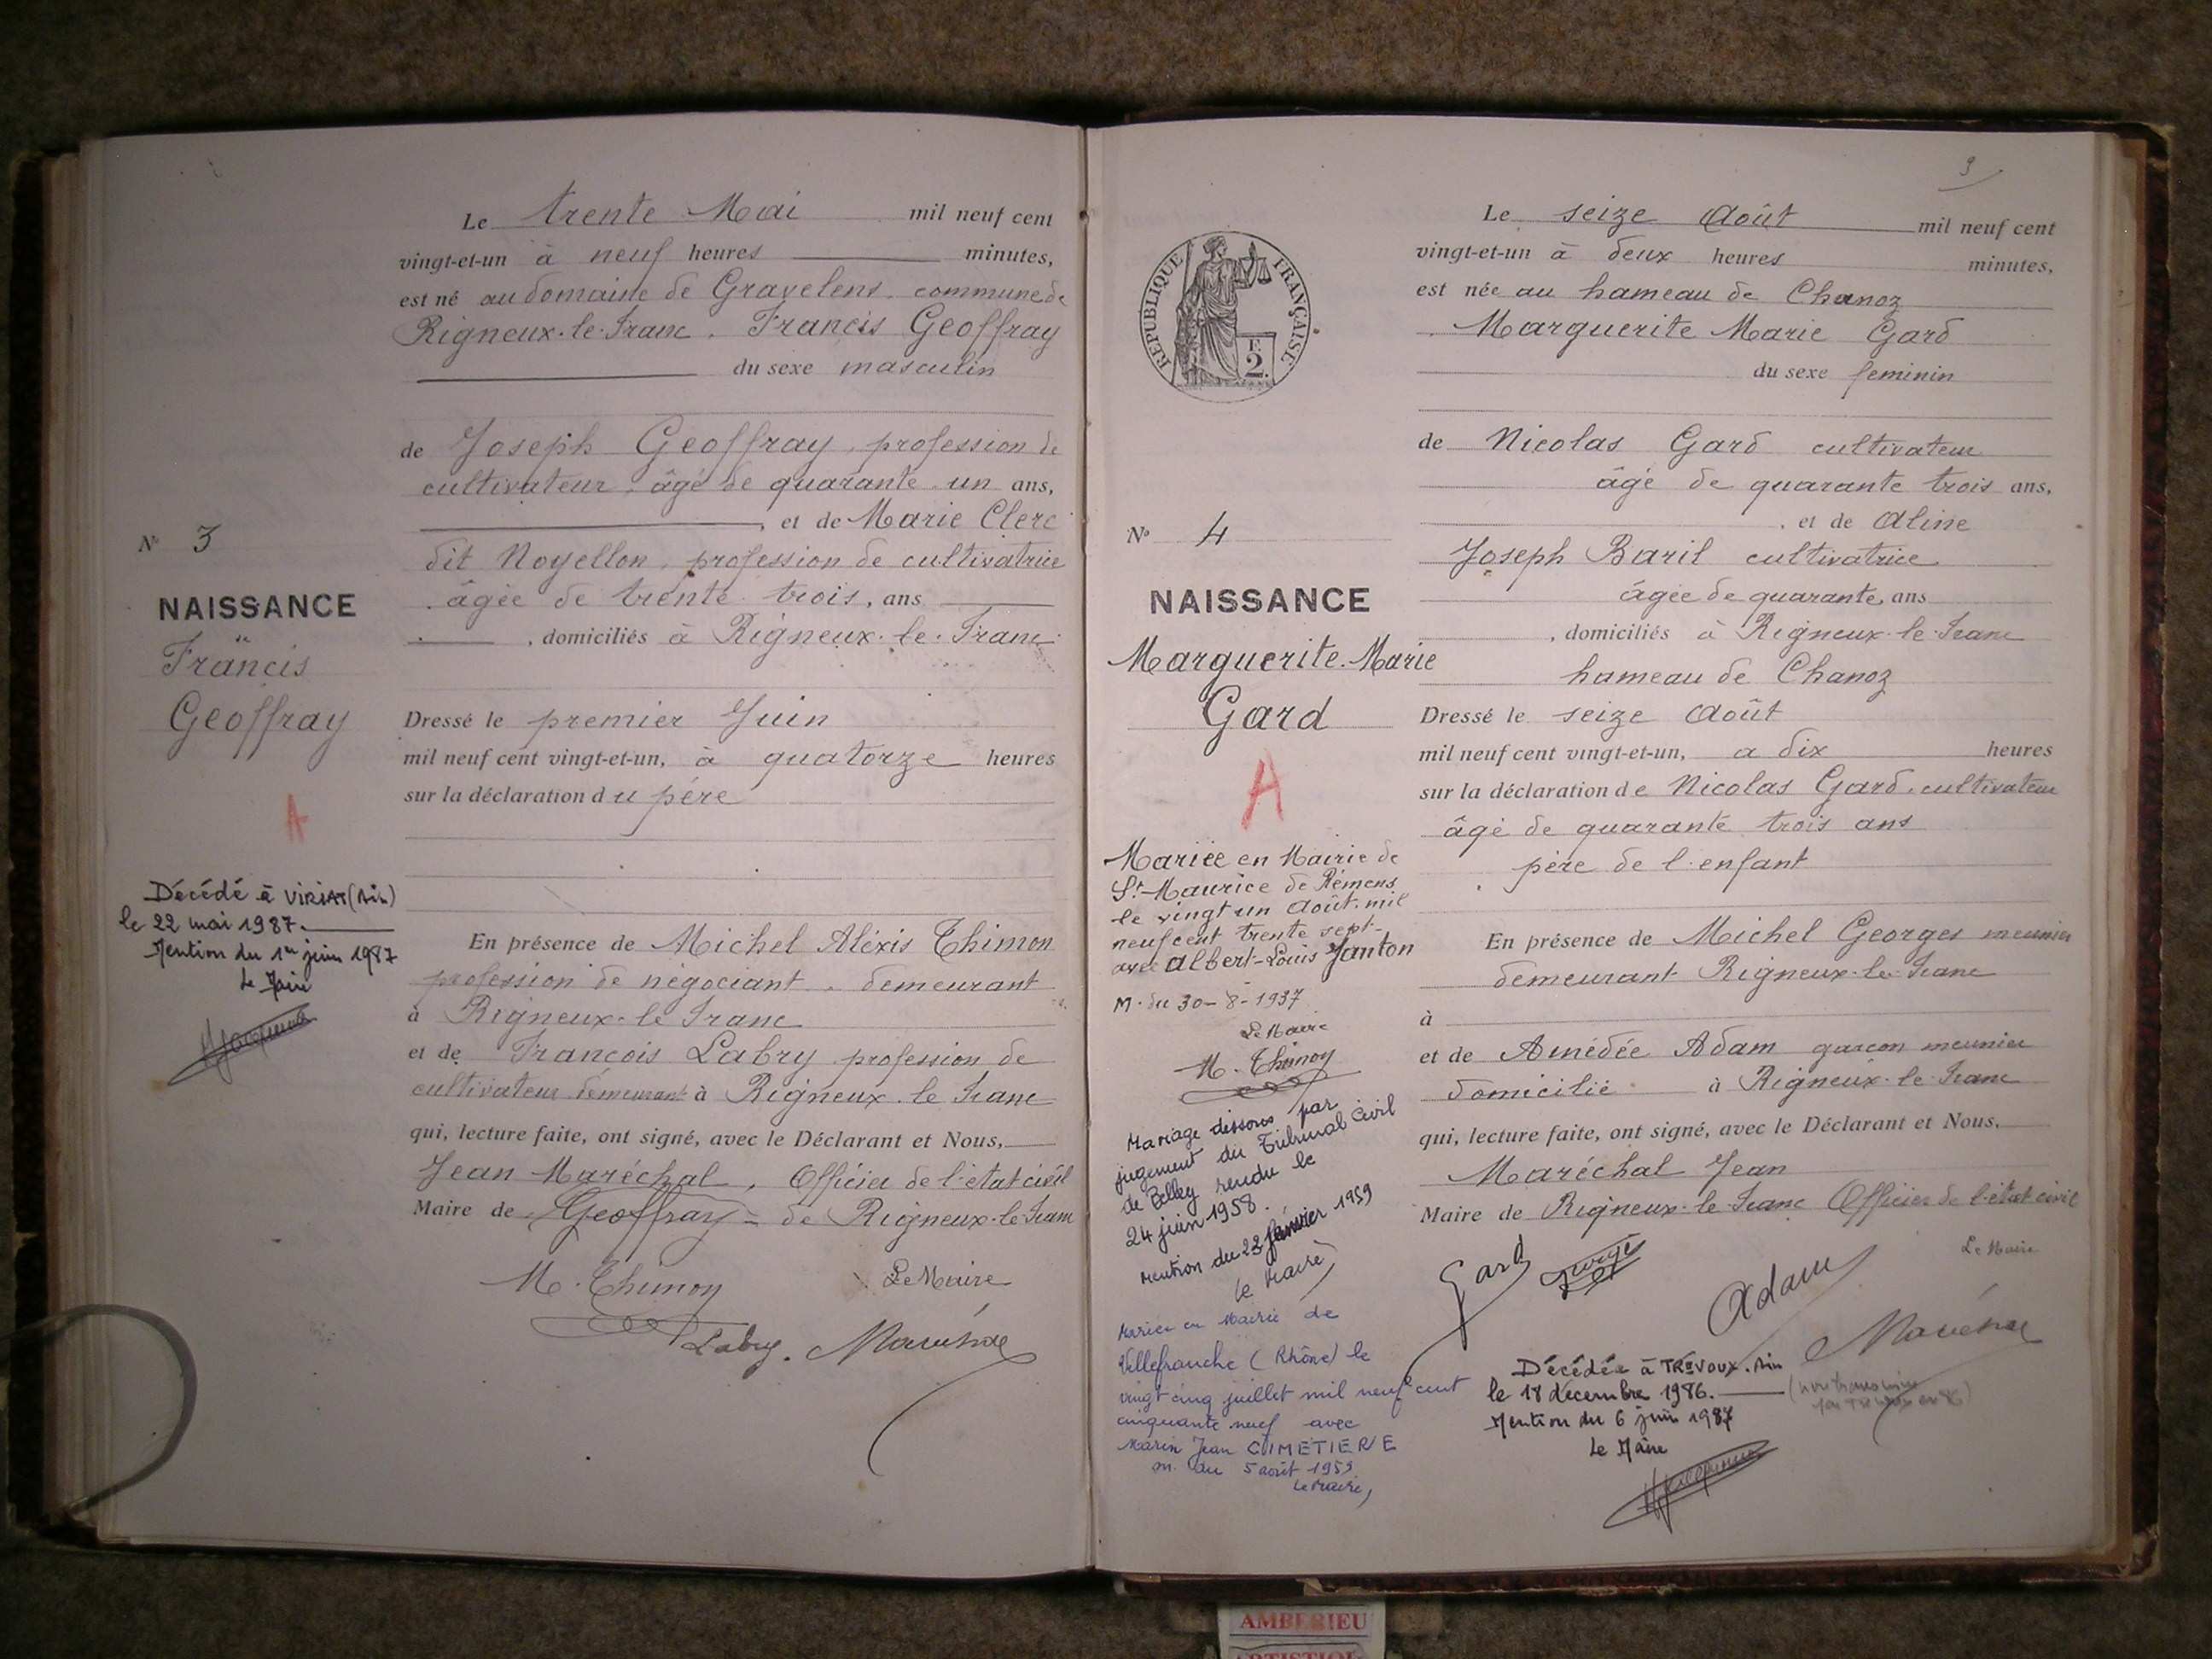 Le trente Mai mil neuf cent
vingt-et-un à neuf heures minutes,
est né au domaine de Gravelens commune de
Rigneux-le-Franc. Francis Geoffray
du sexe masculin
de Joseph Geoffray, profession de
cultivateur, âgé de quarante un ans,
, et de Marie Clerc
dit Noyellon, profession de cultivatrice
âgée de trente trois, ans
, domiciliés à Rigneux-le-Franc
Dressé le premier Juin
mil neuf cent vingt-et-un, à quatorze heures
sur la déclaration du père
En présence de Michel Aléxis Thimon
profession de négociant, demeurant
à Rigneux-le Franc
et de François Labry profession de
cultivateur demeurant à Rigneux-le Franc
qui, lecture faite, ont signé, avec le Déclarant et Nous,
Jean Maréchal, Officier de l'état civil
Maire de Geoffray de Rigneux-le-Franc
M. Thimon
Le Maire
Labry. Maréchal
N° 3
NAISSANCE
Francis
Geoffray
A
Décédé à VIRIAT (Ain)
le 22 mai 1987.
Mention du 1er juin 1987
Le Maire
9
Le seize Août mil neuf cent
vingt-et-un à deux heures minutes,
est née au hameau de Chanoz
Marguerite Marie Gard
du sexe feminin
de Nicolas Gard cultivateur
âgé de quarante trois ans,
, et de Aline
Joseph Baril cultivatrice
âgée de quarante, ans
, domiciliés à Rigneux-le-Franc
hameau de Chanoz
Dressé le seize Août
mil neuf cent vingt-et-un, a dix heures
sur la déclaration de Nicolas Gard, cultivateur
âgé de quarante trois ans
père de l'enfant
En présence de Michel Georges meunier
demeurant Rigneux-le-Franc
à
et de Amédée Adam garçon meunier
domicilié à Rigneux-le-Franc
qui, lecture faite, ont signé, avec le Déclarant et Nous,
Maréchal Jean
Maire de Rigneux-le-Franc Officier de l'état civil
Le Maire
Gard
Adam
Maréchal
Décédée à TRÉVOUX. Ain
le 18 décembre 1986.
Mention du 6 juin 1987
Le Maire
RÉPUBLIQUE FRANÇAISE
F.
2.
N° 4
NAISSANCE
Marguerite-Marie
Gard
A
Mariée en Mairie de
St-Maurice de Rémens
le vingt un Août mil
neuf cent trente sept
avec Albert-Louis Janton
M. du 30-8-1937
Le Maire
M. Thimon
Mariage dissous par
jugement du Tribunal Civil
de Belley rendu le
24 juin 1958.
Mention du 22 Janvier 1959
Le Maire,
Mariée en Mairie de
Villefranche (Rhône) le
vingt cinq juillet mil neuf cent
cinquante neuf avec
Marin Jean CIMETIERE
m. du 5 août 1959
Le Maire,
AMBERIEU